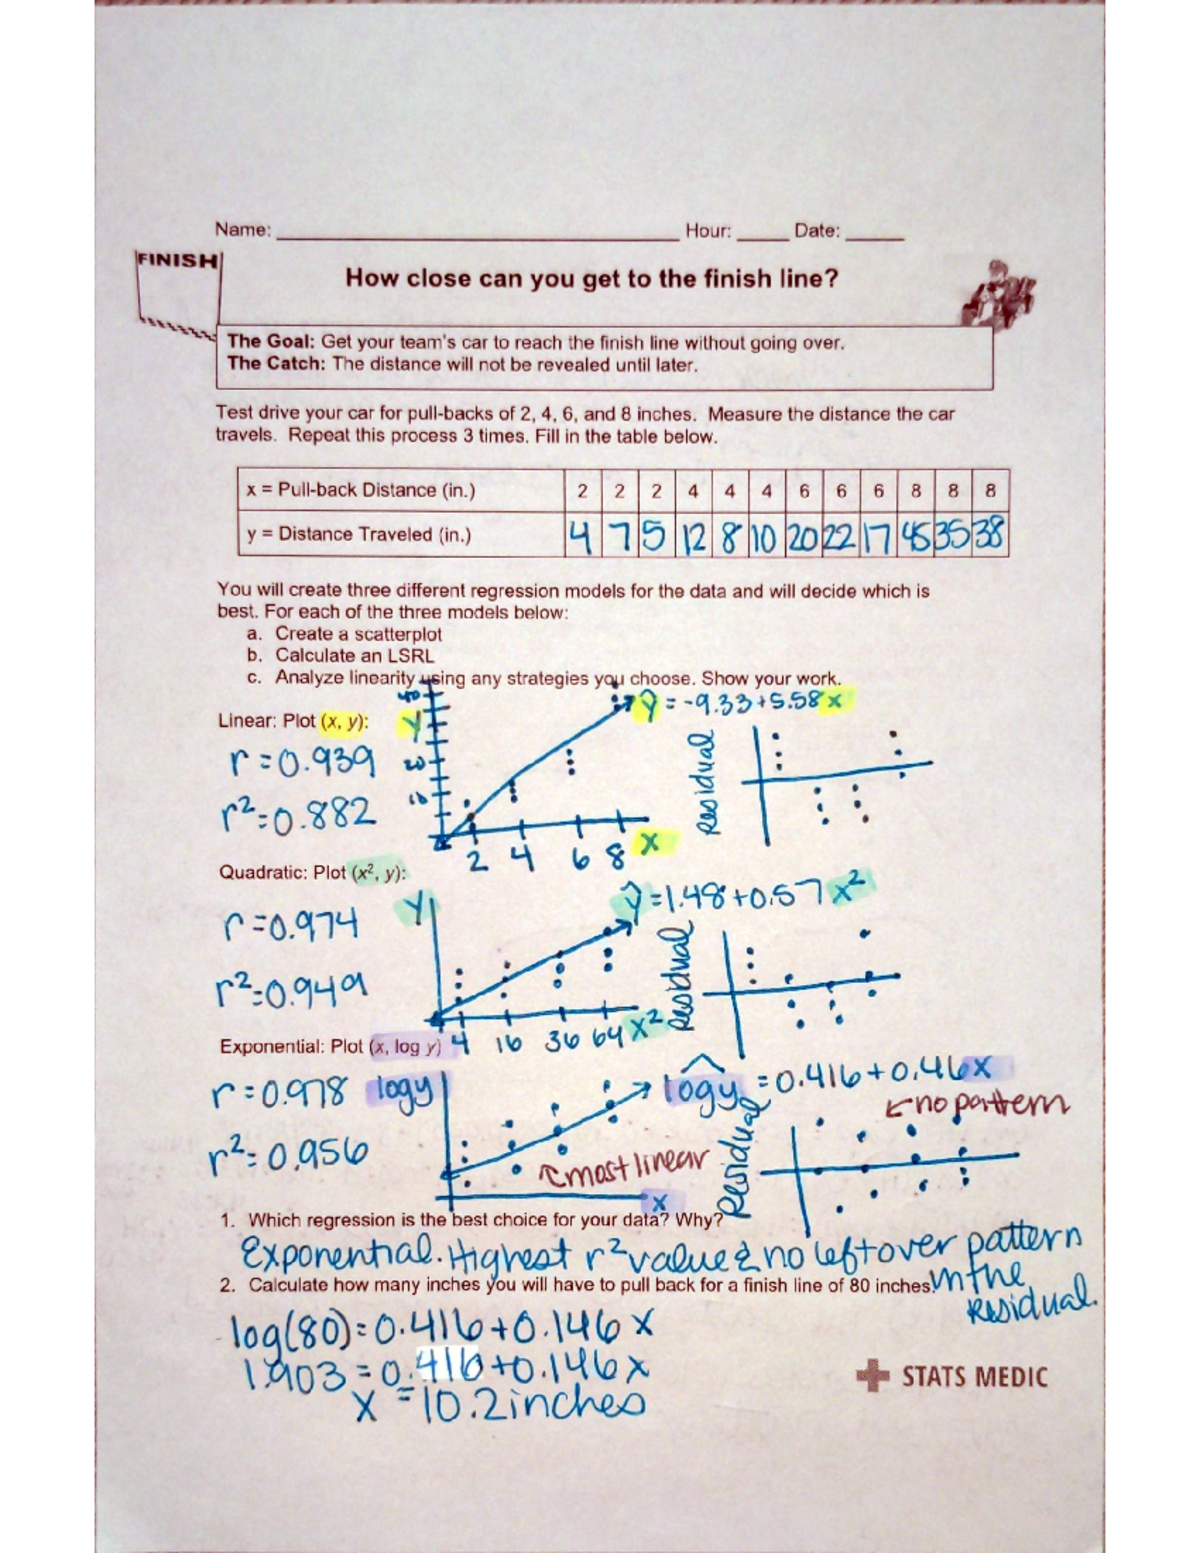 Name: ____ Hour: ____ Date: ____
FINISH
How close can you get to the finish line?
The Goal: Get your team's car to reach the finish line without going over.
The Catch: The distance will not be revealed until later.
Test drive your car for pull-backs of 2, 4, 6, and 8 inches. Measure the distance the car
travels. Repeat this process 3 times. Fill in the table below.
x = Pull-back Distance (in.) 2 2 2 4 4 4 6 6 6 8 8 8
y = Distance Traveled (in.) 4 7 5 12 8 10 20 22 17 45 35 38
You will create three different regression models for the data and will decide which is
best. For each of the three models below:
a. Create a scatterplot
b. Calculate an LSRL
c. Analyze linearity using any strategies you choose. Show your work.
Linear: Plot (x, y):
r=0.939
r²=0.882
40
y
20
10
2 4 6 8 x
ŷ=-9.33+5.58x
Residual
Quadratic: Plot (x², y):
r=0.974
r²=0.949
y
4 16 36 64 x²
ŷ=1.48+0.57x²
Residual
Exponential: Plot (x, log y)
r=0.978
r²=0.956
logy
x
most linear
logŷ=0.416+0.46x
no pattern
Residual
1. Which regression is the best choice for your data? Why?
Exponential. Highest r² value & no leftover pattern
in the
Residual.
2. Calculate how many inches you will have to pull back for a finish line of 80 inches.
log(80)=0.416+0.146x
1.903=0.416+0.146x
x=10.2inches
STATS MEDIC